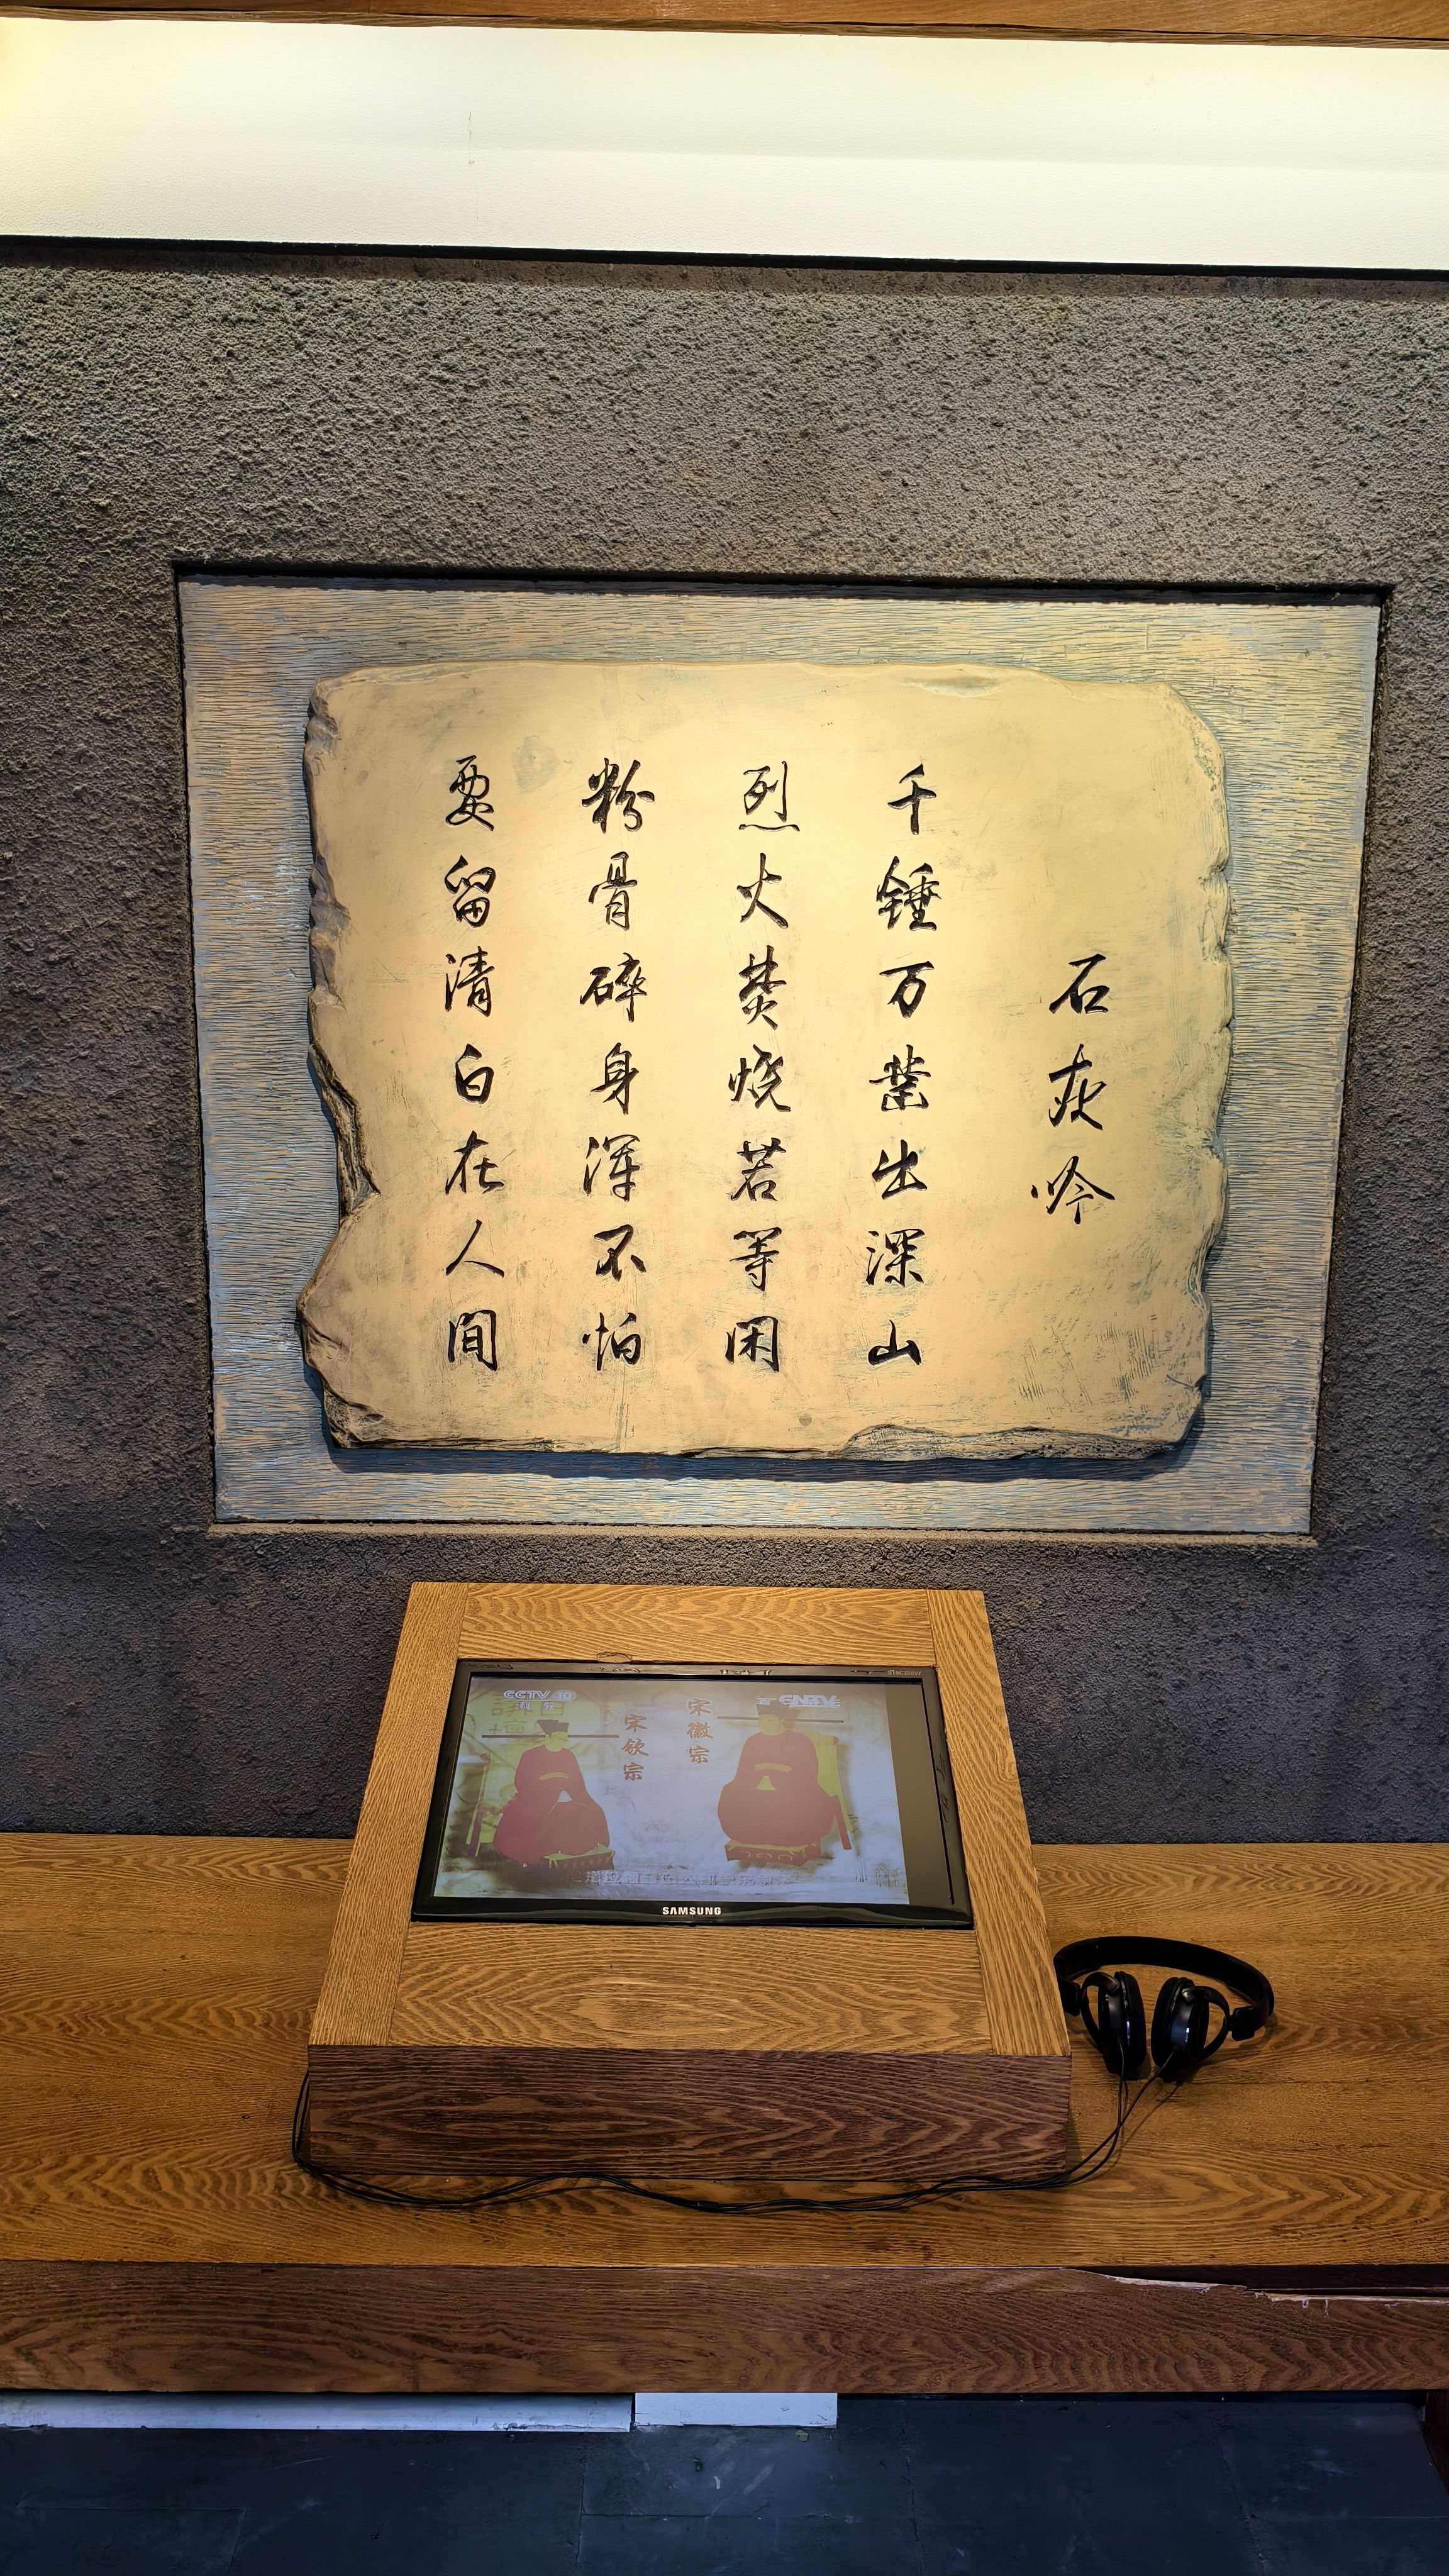 石灰吟
千锤万凿出深山
烈火焚烧若等闲
粉骨碎身浑不怕
要留清白在人间
CCTV 10
CNTV
宋徽宗
宋钦宗
SAMSUNG